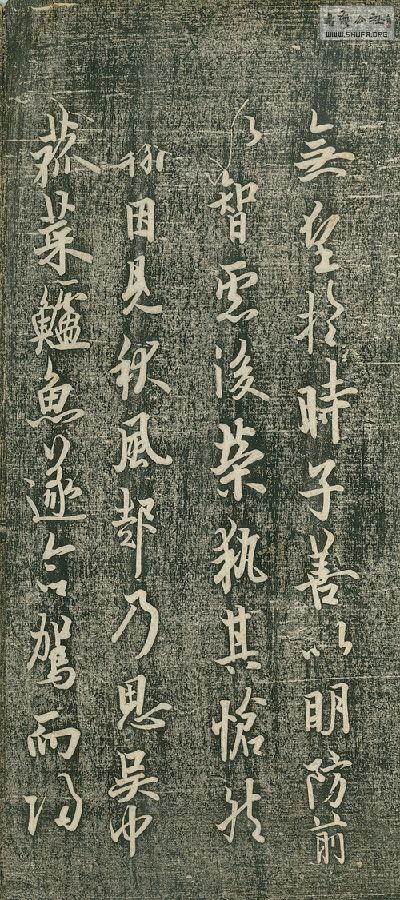 無望於時子善以明防前
以智慮後榮執其愴然
翰因見秋風起乃思吳中
菰菜鱸魚遂命駕而歸
WWW.SHUFA.ORG